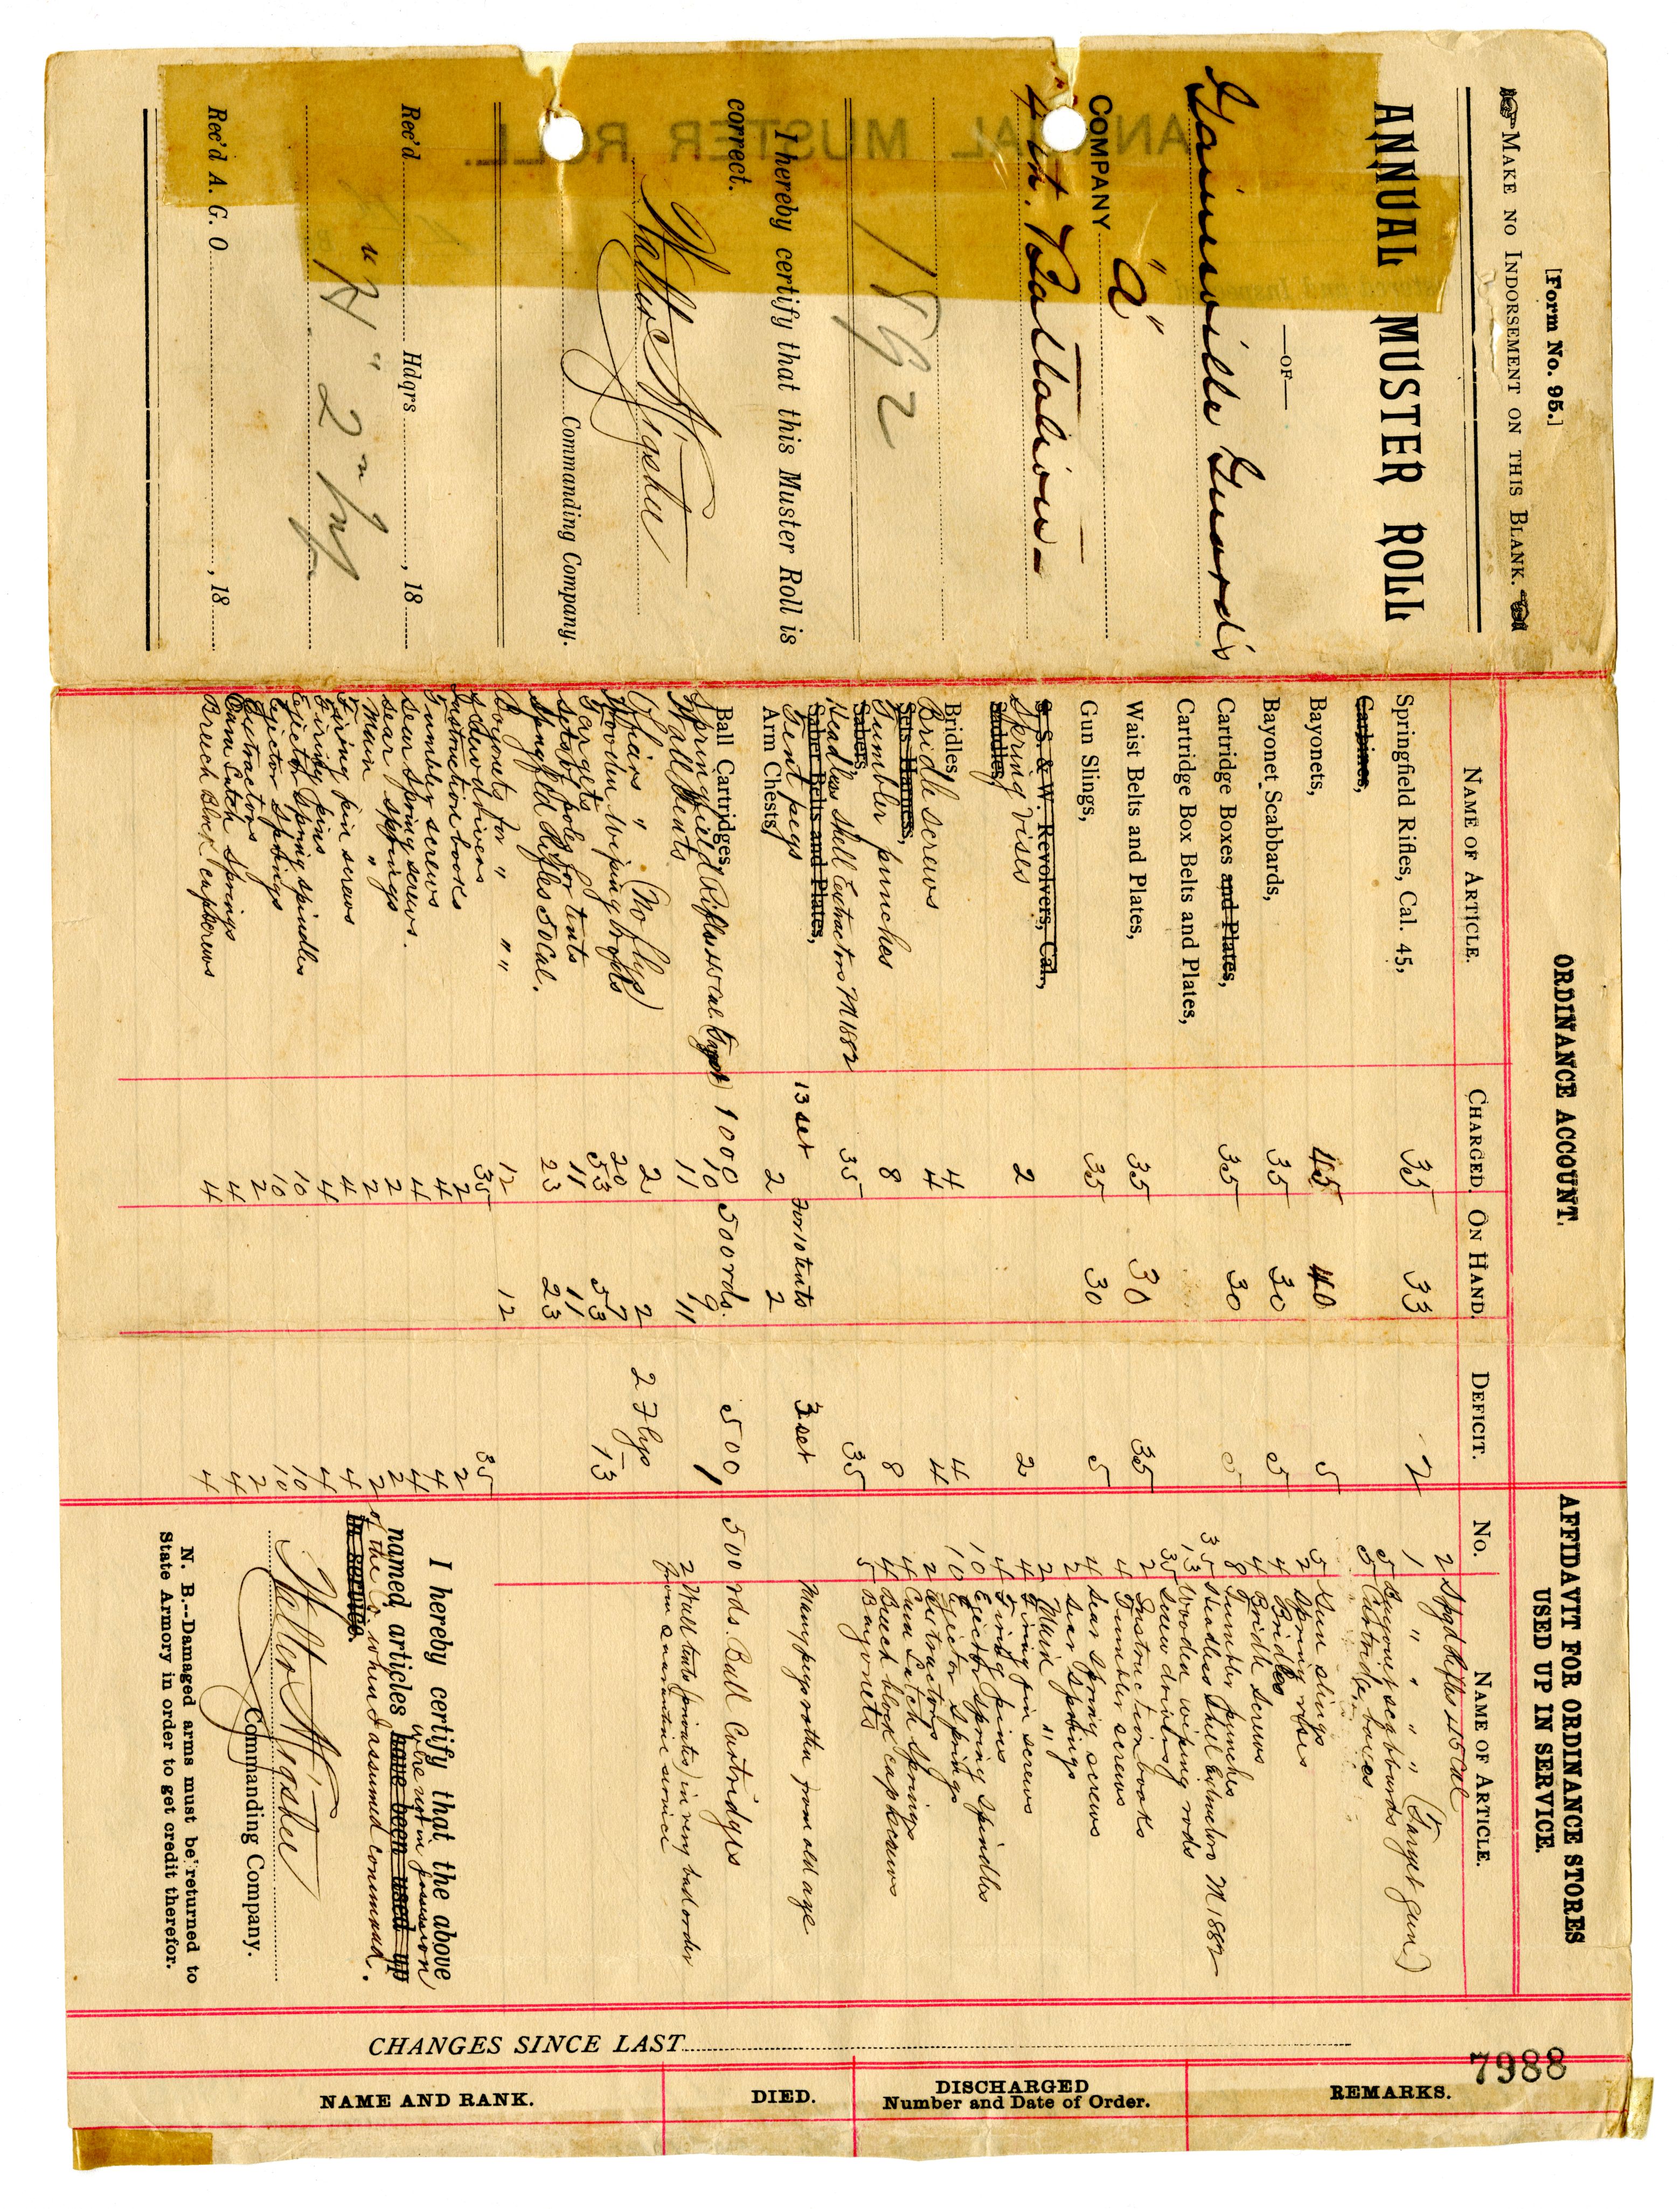 [Form No. 95.]
MAKE NO INDORSEMENT ON THIS BLANK.
ANNUAL MUSTER ROLL
—OF—
Gainesville Guards
COMPANY "A"
4th. Battalion
1892
I hereby certify that this Muster Roll is
correct.
Commanding Company.
Rec'd Hdqrs , 18
"H" 2nd Inf
Rec'd A. G. O. , 18
ANNUAL MUSTER ROLL.
ORDINANCE ACCOUNT.
NAME OF ARTICLE. CHARGED. ON HAND. DEFICIT.
Springfield Rifles, Cal. 45, 35 33 2
Carbines,
Bayonets, 45 40 5
Bayonet Scabbards, 35 30 5
Cartridge Boxes and Plates, 35 30 5
Cartridge Box Belts and Plates,
Waist Belts and Plates, 35 30 35
Gun Slings, 35 30 5
S. S. & W. Revolvers, Cal.,
Spring vises 2 2
Saddles,
Bridles, 4 4
Bridle screws 4 4
Sets Harness,
Tumbler punches 8 8
Sabers,
Headless Shell Extractors M1882 35 35
Saber Belts and Plates,
Tent pegs 13 set For 10 tents 3 set
Arm Chests, 2 2
Ball Cartridges, 1000 500 rds. 500
Springfield Rifles 45 Cal. 10 9 1
Wall tents 11 11
" (No flys) 2 2 2 Flys
Wooden wiping rods 20 7 13
Targets 53 53
Sets of poles for tents 11 11
Springfld Rifles 50 Cal. 23 23
Bayonets for " " " 12 12
Screwdrivers
Instruction books 35 35
Tumbler screws
Sear spring screws.
Sear springs 2 2
Main " 2 2
Firing pin screws 4 4
Firing pins 4 4
Ejector spring spindles 10 10
Ejector springs 10 10
Extractors 2 2
Cam Catch Springs 4 4
Breech Block cap screws 4 4
AFFIDAVIT FOR ORDINANCE STORES
USED UP IN SERVICE.
No. NAME OF ARTICLE.
2 Spgd Rifles 45 Cal
1 " " " " (Target Gun)
5 Bayonet scabbards
5 Cartridge boxes
5 Gun slings
2 Spring vises
4 Bridles
4 Bridle screws
8 Tumbler punches
35 Headless Shell Extractors M 1882
13 Wooden wiping rods
35 Screw drivers
2 Instruction books
4 Tumbler screws
4 Sear spring screws
2 Sear springs
2 Main "
4 Firing pin screws
4 Firing pins
10 Ejector spring spindles
10 Ejector springs
2 Extractors
4 Cam Catch Springs
4 Breech block cap screws
5 Bayonets
Many pegs rotten from old age
500 rds. Ball Cartridges
2 Wall tents (private) in very bad order
from quarantine service
I hereby certify that the above
named articles have been used up
were not in possession
of the Co. when I assumed command.
in service.
Commanding Company.
N. B.—Damaged arms must be returned to
State Armory in order to get credit therefor.
CHANGES SINCE LAST
NAME AND RANK. DIED. DISCHARGED
Number and Date of Order. REMARKS.
7988